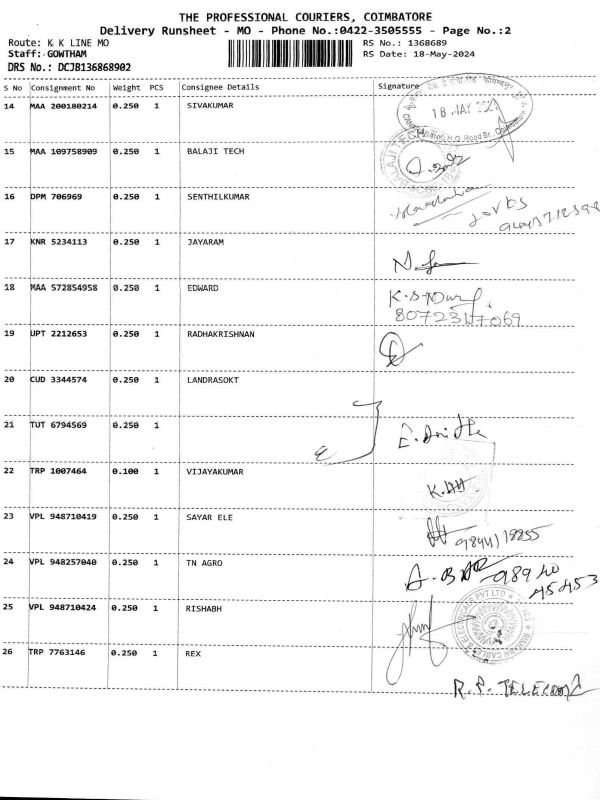 THE PROFESSIONAL COURIERS, COIMBATORE
Delivery Runsheet - MO - Phone No.:0422-3505555 - Page No.:2
Route: K K LINE MO
Staff: GOWTHAM
DRS No.: DCJB136868902
RS No.: 1368689
RS Date: 18-May-2024
S No Consignment No Weight PCS Consignee Details Signature
14 MAA 200180214 0.250 1 SIVAKUMAR
18 MAY 202
15 MAA 109758909 0.250 1 BALAJI TECH
BALAJI TECH
16 DPM 706969 0.250 1 SENTHILKUMAR
17 KNR 5234113 0.250 1 JAYARAM
18 MAA 572854958 0.250 1 EDWARD
19 UPT 2212653 0.250 1 RADHAKRISHNAN
20 CUD 3344574 0.250 1 LANDRASOKT
21 TUT 6794569 0.250 1
22 TRP 1007464 0.100 1 VIJAYAKUMAR
23 VPL 948710419 0.250 1 SAYAR ELE
24 VPL 948257040 0.250 1 TN AGRO
25 VPL 948710424 0.250 1 RISHABH
PVT LTD
26 TRP 7763146 0.250 1 REX
R.P. TELECOM